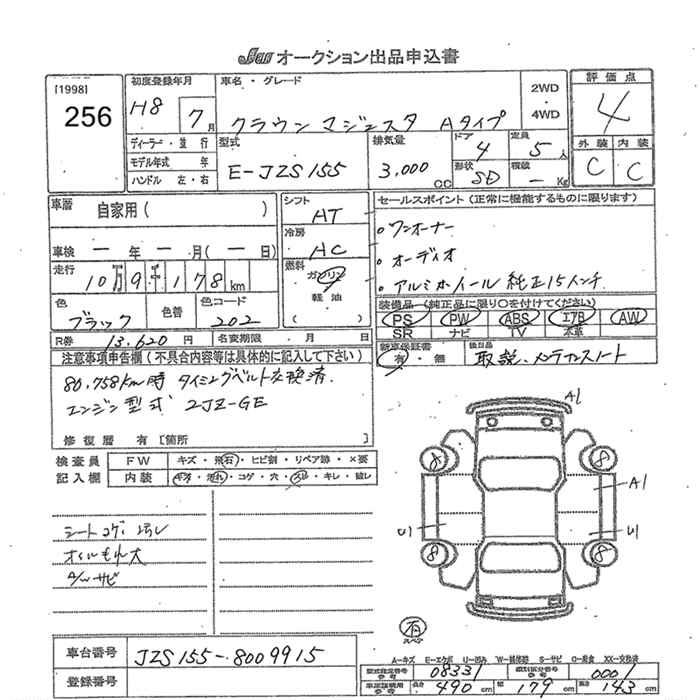 JAA オークション出品申込書
[1998]
256
初度登録年月
H8 7月
ディーラー・並行
モデル年式 年
ハンドル 左・右
車名・グレード
クラウン マジェスタ Aタイプ
2WD
4WD
型式
E-JZS155
排気量
3,000cc
ドア
4
定員
5人
形状
SD
積載
- Kg
評価点
4
外装 内装
C C
車歴
自家用( )
車検 ー年 ー月(ー日)
走行
10万9千178km
色
ブラック
色替
色コード
202
R券 13,620円 名変期限 月 日
シフト
AT
冷房
AC
燃料
ガソリン
軽油
( )
セールスポイント(正常に機能するものに限ります)
・ワンオーナー
・オーディオ
・アルミホイール 純正15インチ
装備品(純正品に限り○を付けてください)
PS PW ABS エアB AW
SR ナビ TV 本革
新車保証書
有・無
後日品
取説、メンテナンスノート
注意事項申告欄(不具合内容等は具体的に記入して下さい)
80,758km時 タイミングベルト交換済.
エンジン型式 2JZ-GE
修復歴 有[箇所 ]
検査員
記入欄
FW キズ・飛石・ヒビ割・リペア跡・×要
内装 キズ・汚れ・コゲ・穴・スレ・キレ・破レ
シートコゲ・スレ
オイルもれ大
A/wサビ
A1
8 8
A1
U1 U1
8 8
有
スペア
車台番号 JZS155-8009915
登録番号
A─キズ E─エクボ U─凹み W─補修跡 S─サビ C─腐食 XX─交換済
型式指定番号
参考
08331
類別区分番号
参考
0001
車両諸元用
参考
長さ 490cm 幅 179cm 高さ 143cm